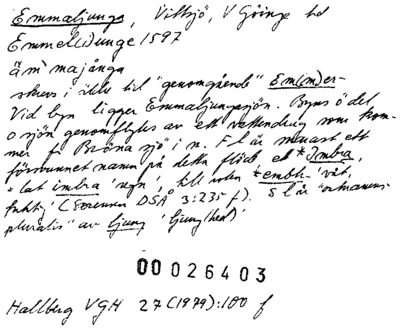 Emmaljunga, Vittsjö, V Göinge hd
Emmel(i)unge 1597
äm`majånga
skrevs i äldre tid "genomgående" Em(m)er-
Vid byn ligger Emmaljungasjön. Byns ö del
o sjön genomflytes av ett vattendrag som kom-
mer fr Bröna sjö i n. F l är menast ett
försvunnet namn på detta flöde, el *Imbra,
lat imbra 'regn', till roten *embh- 'våt,
fuktig' (Sorensen DSÅ 3:235 f). S l är "ortnamns-
pluralis" av ljung 'ljung(hed)'
00026403
Hallberg VGH 27 (1979):100 f